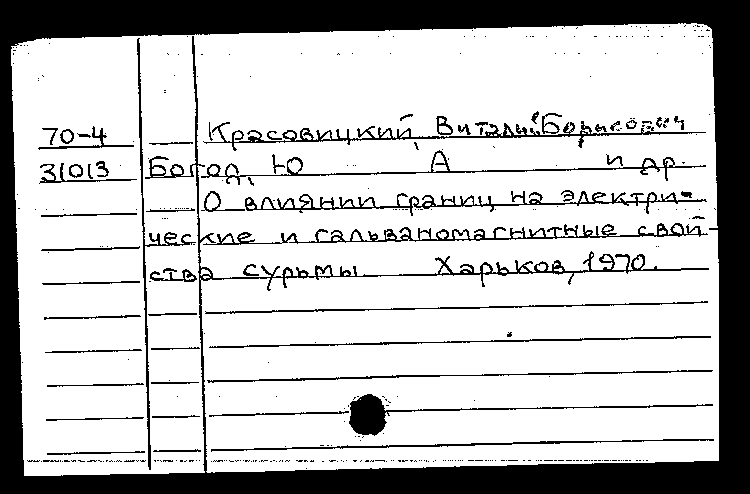 70-4 Красовицкий, Виталий Борисович
31013 Богод, Ю А и др.
О влиянии границ на электри-
ческие и гальваномагнитные свой-
ства сурьмы Харьков, 1970.